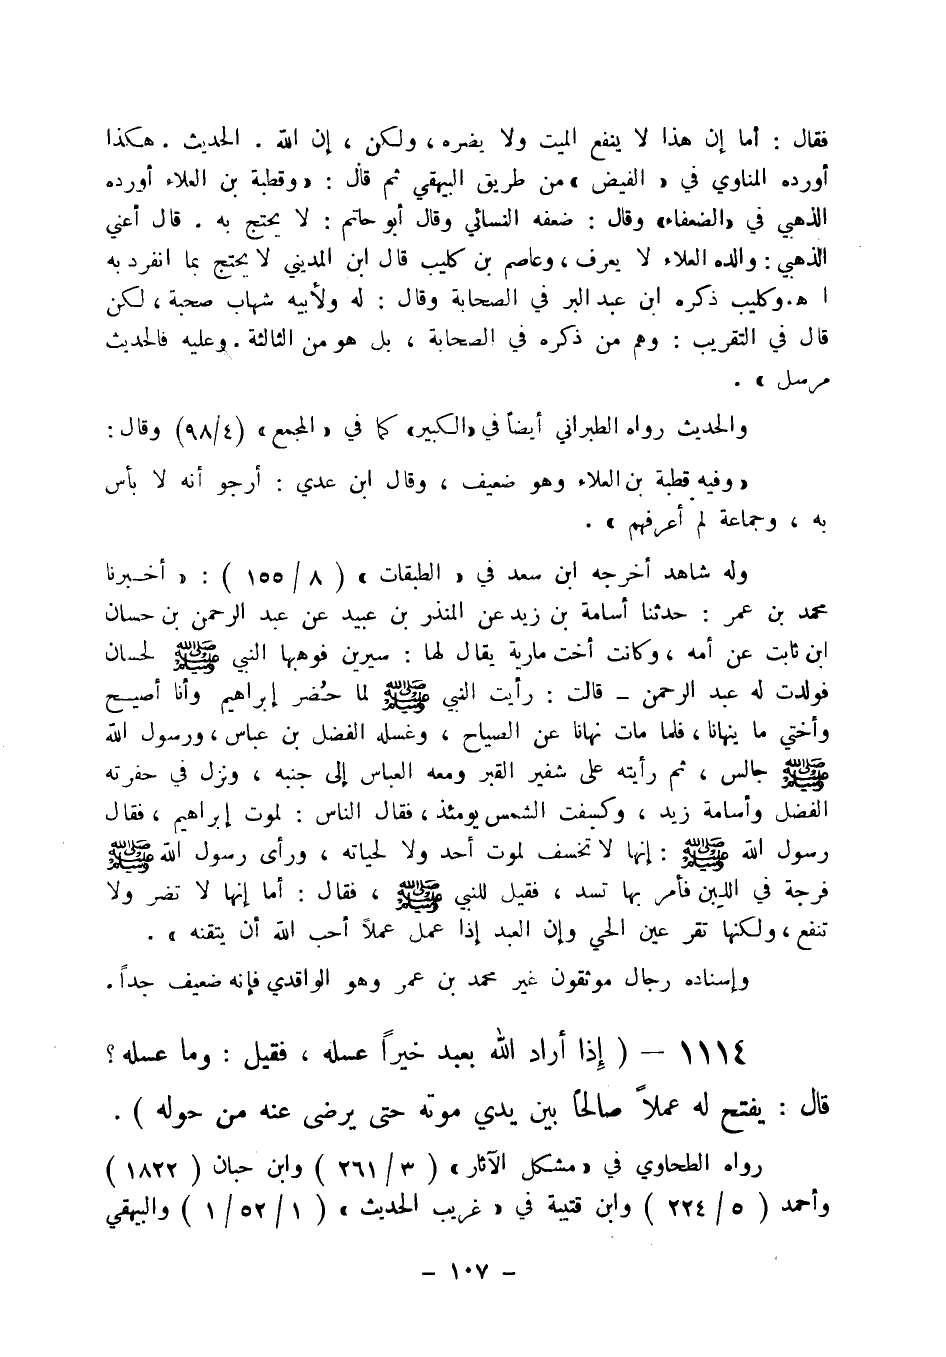 فقال : أما إن هذا لا ينفع الميت ولا يضره ، ولكن ، إن الله . الحديث . هكذا
أورده المناوي في « الفيض » من طريق البيهقي ثم قال : « وقطبة بن العلاء أورده
الذهبي في «الضعفاء» وقال : ضعفه النسائي وقال أبو حاتم : لا يحتج به . قال أعني
الذهبي : والده العلاء لا يعرف ، وعاصم بن كليب قال ابن المديني لا يحتج بما انفرد به
ا هـ . وكليب ذكره ابن عبد البر في الصحابة وقال : له ولأبيه شهاب صحبة ، لكن
قال في التقريب : وهم من ذكره في الصحابة ، بل هو من الثالثة . وعليه فالحديث
مرسل » .
والحديث رواه الطبراني أيضاً في «الكبير» كما في « المجمع » (٩٨/٤) وقال :
« وفيه قطبة بن العلاء وهو ضعيف ، وقال ابن عدي : أرجو أنه لا بأس
به ، وجماعة لم أعرفهم » .
وله شاهد أخرجه ابن سعد في « الطبقات » ( ٨ / ١٥٥ ) : « أخبرنا
محمد بن عمر : حدثنا أسامة بن زيد عن المنذر بن عبيد عن عبد الرحمن بن حسان
ابن ثابت عن أمه ، وكانت أخت مارية يقال لها : سيرين فوهبها النبي ﷺ لحسان
فولدت له عبد الرحمن – قالت : رأيت النبي ﷺ لما حُضر إبراهيم وأنا أصيح
وأختي ما ينهانا ، فلما مات نهانا عن الصياح ، وغسله الفضل بن عباس ، ورسول الله
ﷺ جالس ، ثم رأيته على شفير القبر ومعه العباس إلى جنبه ، ونزل في حفرته
الفضل وأسامة زيد ، وكسفت الشمس يومئذ ، فقال الناس : لموت إبراهيم ، فقال
رسول الله ﷺ : إنها لا تخسف لموت أحد ولا لحياته ، ورأى رسول الله ﷺ
فرجة في اللبن فأمر بها تسد ، فقيل للنبي ﷺ ، فقال : أما إنها لا تضر ولا
تنفع ، ولكنها تقر عين الحي وإن العبد إذا عمل عملاً أحب الله أن يتقنه » .
وإسناده رجال موثقون غير محمد بن عمر وهو الواقدي فإنه ضعيف جداً .
١١١٤ – ( إذا أراد الله بعبد خيراً عسله ، فقيل : وما عسله ؟
قال : يفتح له عملاً صالحاً بين يدي موته حتى يرضى عنه من حوله ) .
رواه الطحاوي في «مشكل الآثار» ( ٣ / ٢٦١ ) وابن حبان ( ١٨٢٢ )
وأحمد ( ٥ / ٢٢٤ ) وابن قتيبة في « غريب الحديث » ( ١ / ٥٢ / ١ ) والبيهقي
– ١٠٧ –